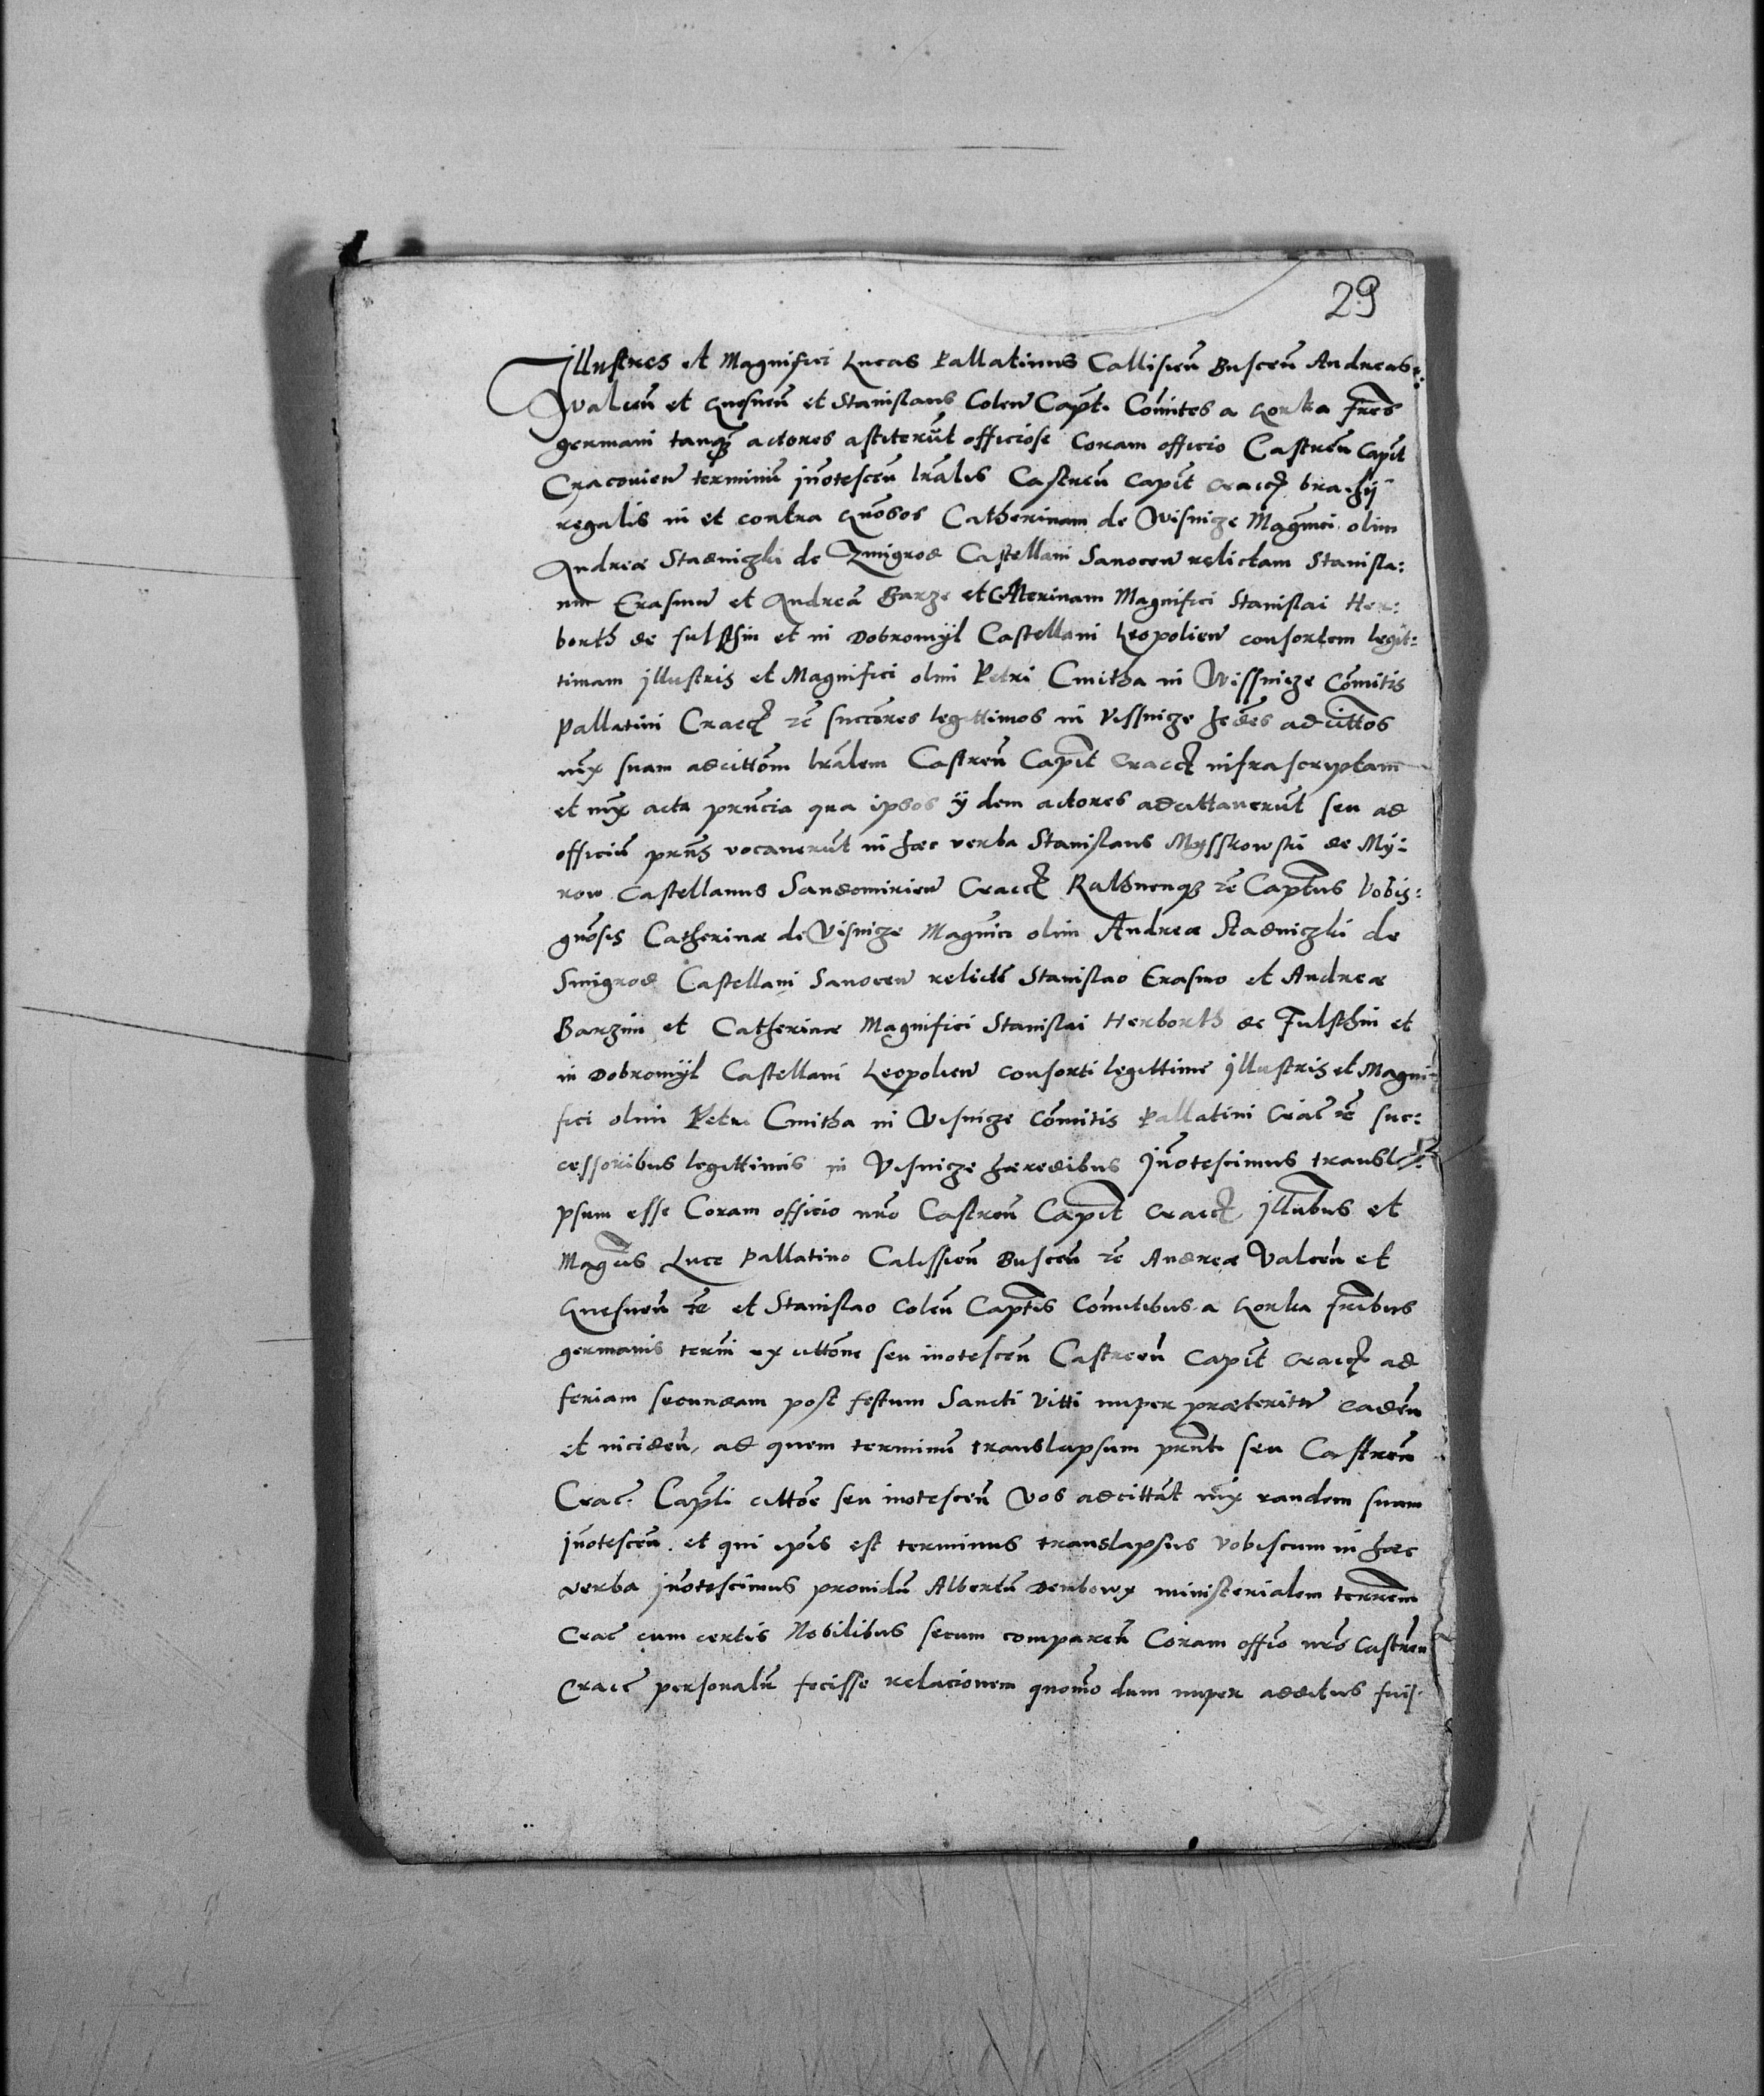 29
Illustres et Magnifici Lucas Pallatinus Callisien̄ Buscen̄ Andreas
Valcen̄ et Gnesnen̄ et Stanislaus Colen̄ Capt. Comites a Gorka fr̄es
germani tanq̄ actores astiterūt officiose coram officio Castren̄ Capit̄
Cracovien̄ terminū jn̄otescen̄ lrālis Castren̄ Capit̄ Cracc̄ brachÿ
regalis in et contra Gn̄osos Catherinam de Wisnicze Magn̄ici olim
Andreæ Stadniczki de Zmigrod Castellani Sanocen̄ relictam Stanisla:
um Erasmū et Andreā Barze et Catterinam Magnifici Stanislai Her:
borth de fulsthin et in Dobromÿl Castellani Leopolien̄ consortem legit:
timam jllustris et Magnifici olim Petri Cmitha in Wissnicze Comitis
pallatini Cracc̄ zc̄ succc̄res legittimos in Vissnicze hēdes adcittos
iux̄ suam adcittōm lrālem Castren̄ Capit̄ Cracc̄ infrascryptam
et iux̄ acta prn̄cia qua ipsos ÿdem actores adcittauerūt seu ad
officiū prn̄s vocauerūt in hæc verba Stanislaus Mysskowski de My:
row Castellanus Sandomirien̄ Cracc̄ Rathnenq̄ zc̄ Captn̄us Vobis:
gn̄osis Catherinæ de Visnicze Magn̄ici olim Andreæ Stadniczki de
Smigrod Castellani Sanocen̄ relictē Stanislao Erasmo et Andreæ
Barzim et Catherinæ Magnifici Stanislai Herborth de Fulsthin et
in Dobromÿl Castellani Leopolien̄ consorti legittimē jllustris et Magni
fici olim Petri Cmitha in Visnicze Comitis Pallatini Crac̄ zc̄ suc:
cessoribus legittimis in Visnicze hæredibus jn̄otescimus transla:
psum esse Coram officio nr̄o Castren̄ Capit̄ Cracc̄ jllūbus et
Magc̄is Luce Pallatino Calissien̄ Buscen̄ zc̄ Andreæ Valcen̄ et
Gnesnen̄ zc̄ et Stanislao Colen̄ Captīs Comitibus a Gorka fr̄ibus
germanis termī ex cittōne seu inotescen̄ Castreen̄ Capit̄ Cracc̄ ad
feriam secundam post festum Sancti Vitti nuper præteritū caden̄
et inciden̄, ad quem terminū translapsum prn̄t. seu Castren̄
Crac̄. Captl̄i cittōe seu inotescen̄ Vos adcittāt iux̄ eandem suam
jn̄otescen̄. et qui ip̄is est terminus translapsus vobiscum in hæc
verba jn̄otescimus prouidū Albertū Dembowy ministerialem terrēm
Crac̄ cum certis Nobilibus secum comparen̄ Coram offīo nr̄o Castren̄
Cracc̄ personalr̄ fecisse relacionem quomō dum nuper additus fuis